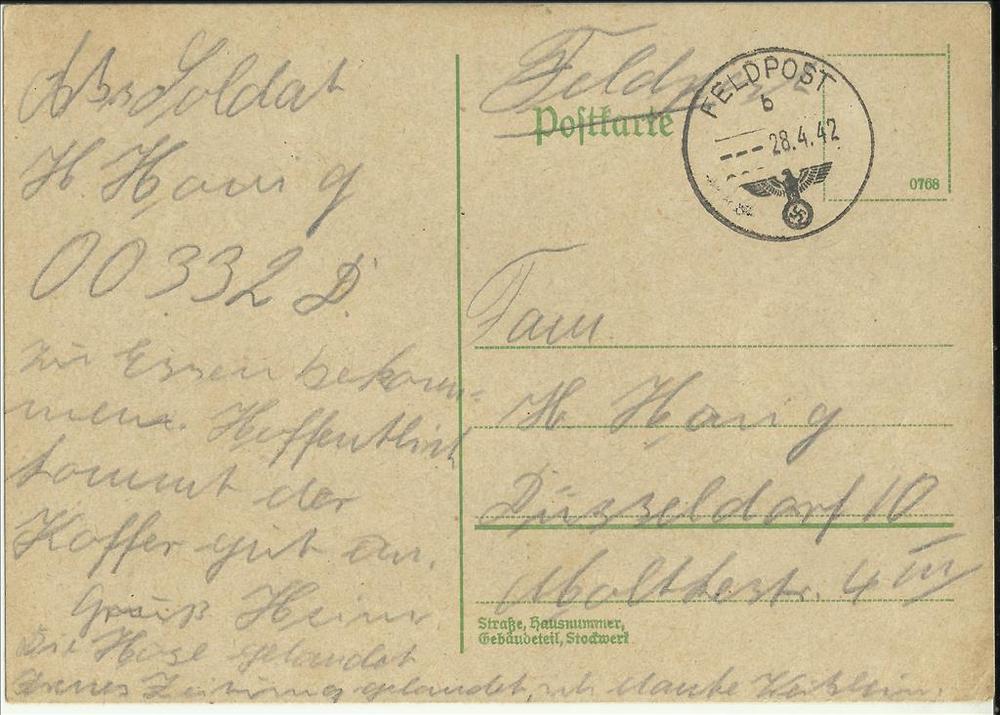 Abs Soldat
H Hanig
00332 D.
zu Essen bekom-
men. Hoffentlich
kommt der
Koffer gut an.
Gruß Heinz.
Die Hose gelandet
Zeitung gelandet, ich danke
Feldpost
Postkarte
FELDPOST
b
28.4.42
0768
Fam.
H. Hanig
Düsseldorf 10
Moltkestr. 4 III
Straße, Hausnummer,
Gebäudeteil, Stockwerk